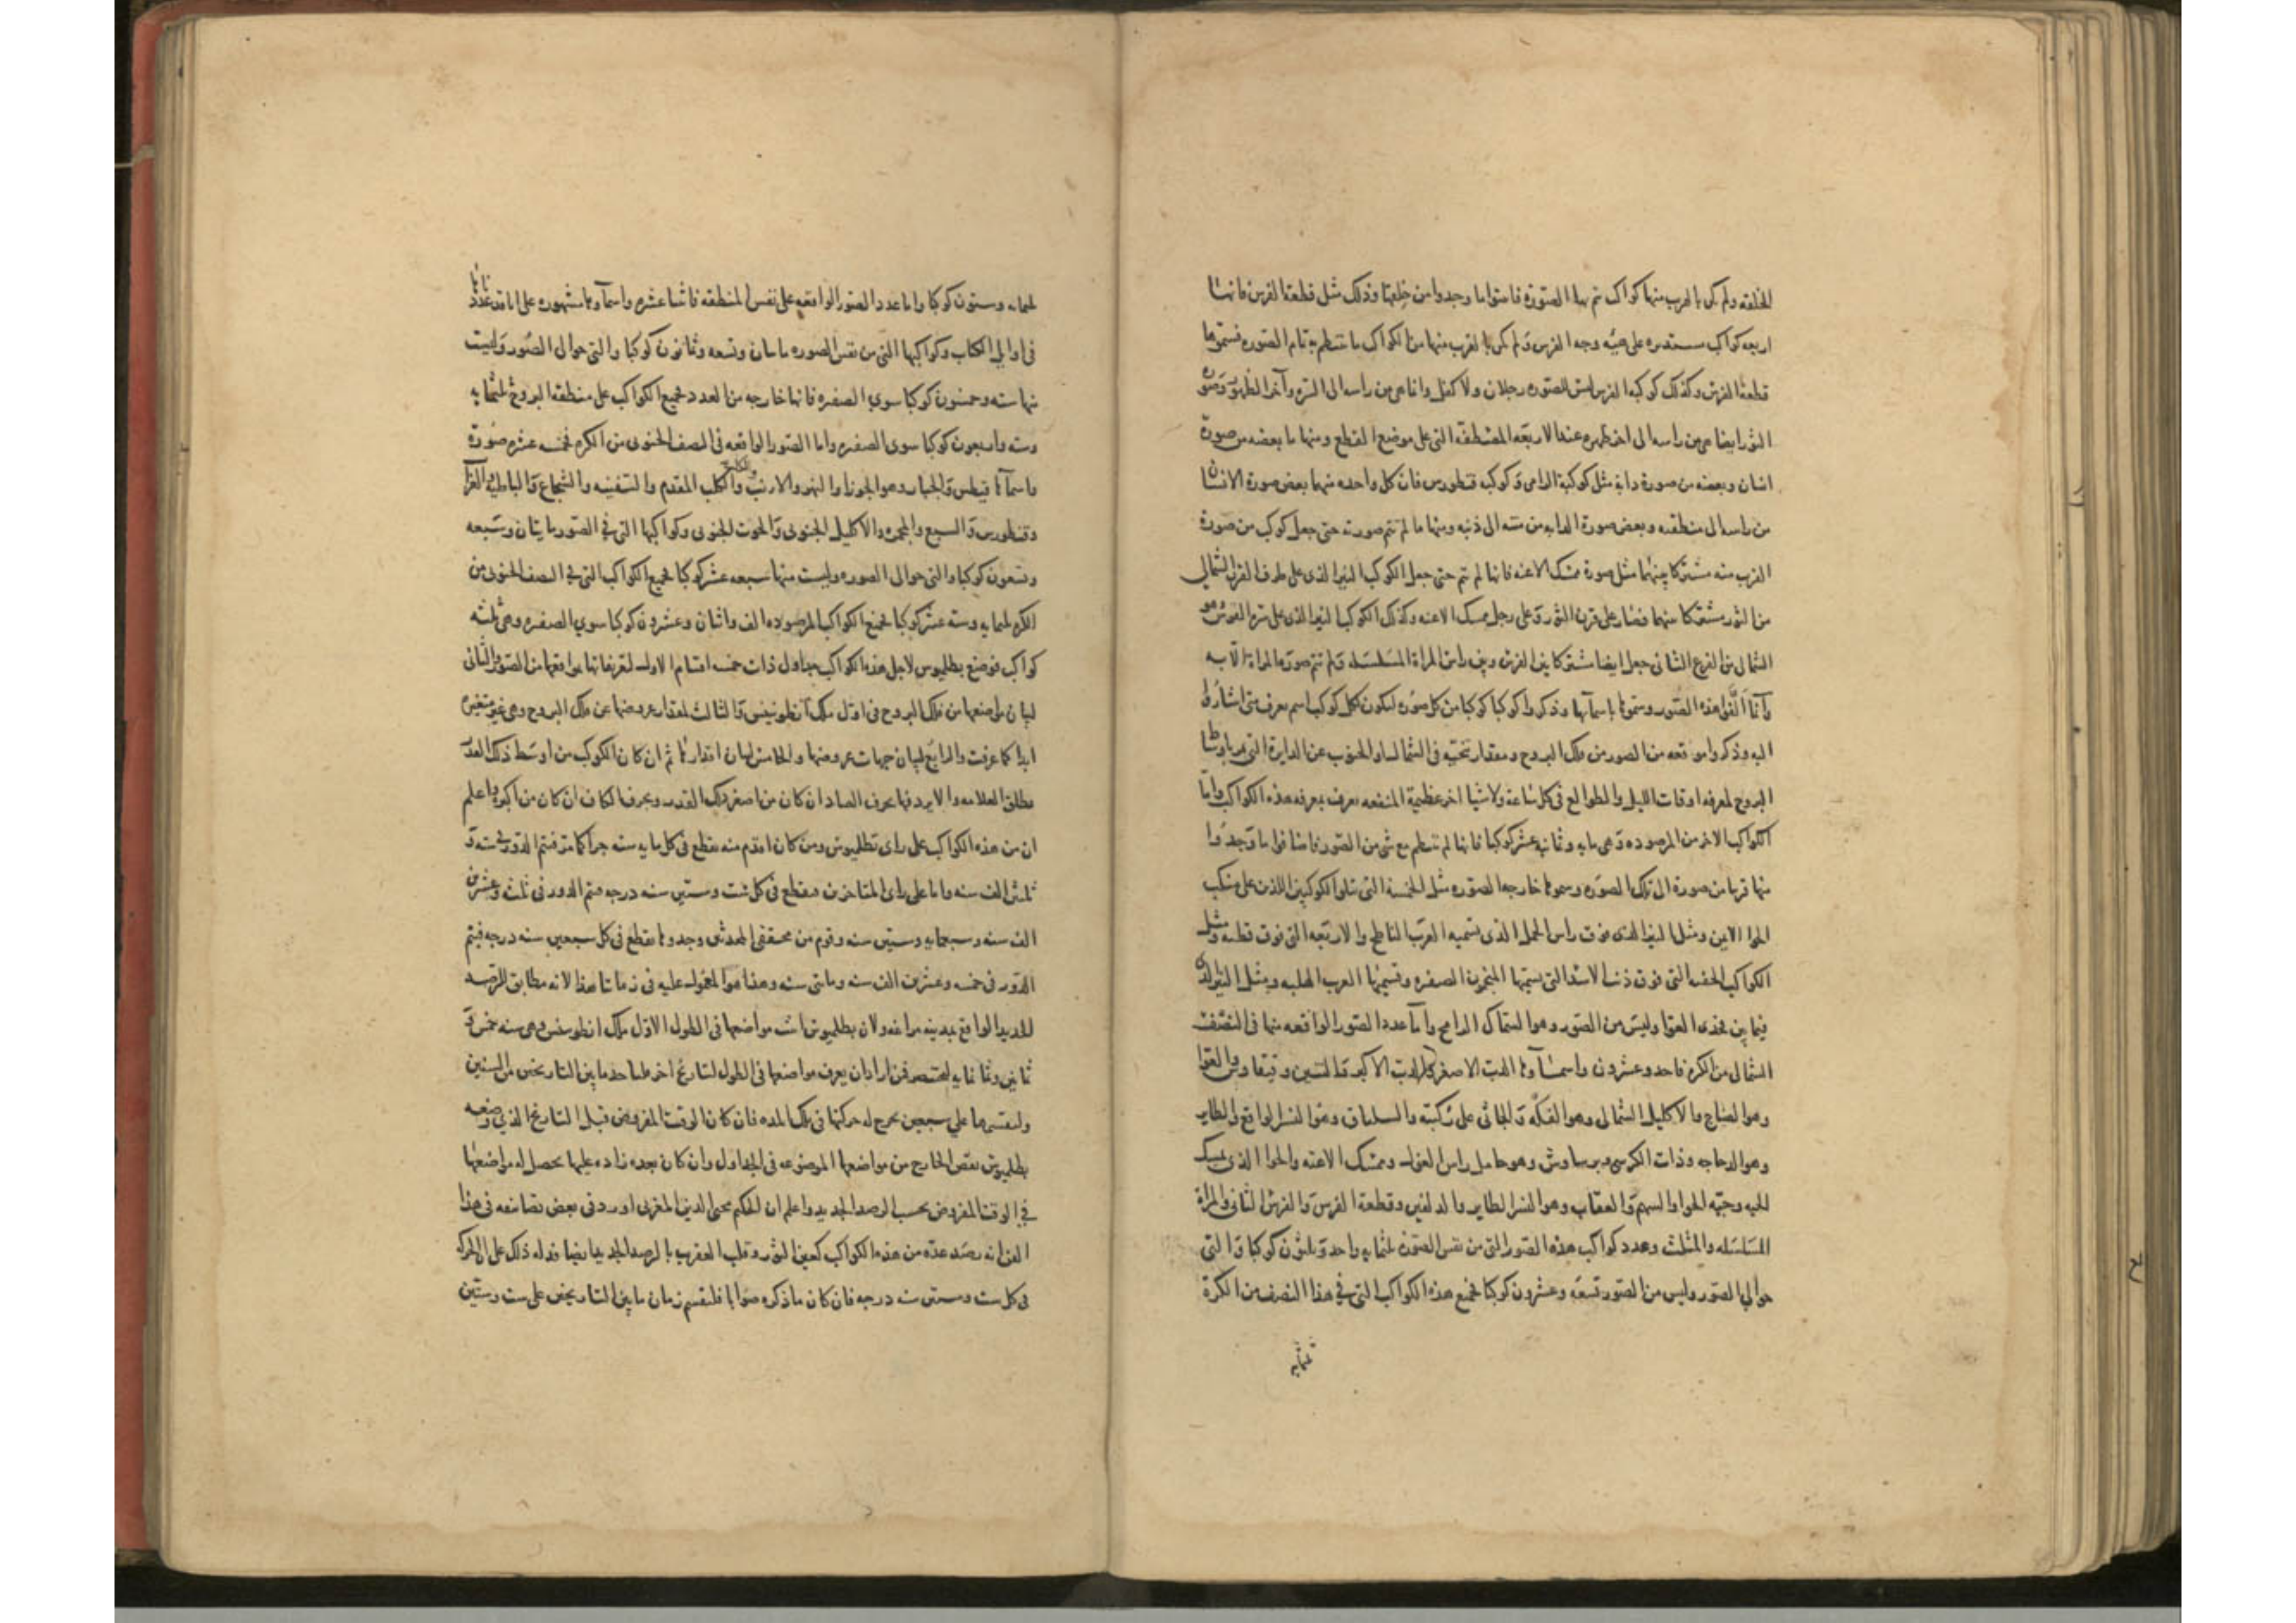 الخلقه ولم يكن بالقرب منها كواكب تتم بها الصوره فاسوا ما وجدوا من خلقتها وذلك مثل قطعة الفرس فانها
اربعه كواكب مستديره على هيئه وجه الفرس ولم يكن بالقرب منها من الكواكب ما ينتظم به تمام الصوره فسموها
قطعة الفرس وكذلك كوكبه الفرس ليس للصوره رجلان ولا كفل وانما هي من راسه الى السره وآخر الظهر وصوره
الثور ايضا هي من راسه الى اخر ظهره عند الاربعه المصطفه التي على موضع القطع ومنها ما بعضه من صورة
انسان وبعضه من صورة دابة مثل كوكبة الرامى وكوكبه قنطورس فان كل واحده منهما بعض صورة الانسان
من راسه الى منطقته وبعض صورة الدابه من متنه الى ذنبه ومنها ما لم تتم صورته حتى جعل كوكب من صورة
القرب منه مشتركا بينهما مثل صورة ممسك الاعنه فانها لم تتم حتى جعل الكوكب النير الذى على طرف القرن الشمالي
من الثور مشتركا بينهما فصار على قرن الثور وعلى رجل ممسك الاعنه وكذلك الكوكب النير الذى على سرة الفرس وهو
الشمالى من الفرع الثانى جعل ايضا مشتركا بين الفرس وبين راس المراة المسلسله ولم تتم صورة المراة الا به
وانما الفوا هذه الصور وسموها باسمآئها وذكروا كوكبا كوكبا من كل صوره ليكون لكل كوكب اسم يعرف متى اشاروا
اليه وذكروا موقعه من الصور من فلك البروج ومقدار تنحيه فى الشمال او الجنوب عن الدايرة التى تمر باوساط
البروج لمعرفه اوقات الليل والطوالع فى كل ساعة ولاشيا اخر عظيمة المنفعه تعرف بمعرفه هذه الكواكب واما
الكواكب الاخر من المرصوده وهى مايه وثمانيه عشر كوكبا فانها لم تنتظم مع شى من الصور فاضافوا ما وجدوا
منها قريبا من صورة الى تلك الصوره وسموها خارجه الصوره مثل الخمسة التى تتلوا الكوكبين اللذين على منكب
الحوا الايمن ومثل النير الذى فوق راس الحمل الذى يسميه العرب الناطح والاربعه التى فوق قطنه ومثل
الكواكب الخفيه التى فوق ذنب الاسد التى يسميها المنجمون الصفره وتسميها العرب الهلبه ومثل النير الذى
فيما بين فخذى العوا وليس من الصور وهو السماك الرامح واما عدد الصور الواقعه منها فى النصف
الشمالى من الكره فاحد وعشرون واسمآؤها الدب الاصغر والدب الاكبر والتنين وقيقاوس والعوا
وهو الصياح والاكليل الشمالى وهو الفكه والجاثى على ركبته والسلياق وهو النسر الواقع والطاير
وهو الدجاجه وذات الكرسى وبرساوش وهو حامل راس الغول وممسك الاعنه والحوا الذى يمسك
الحيه وحيه الحوا والسهم والعقاب وهو النسر الطاير والدلفين وقطعة الفرس والفرس الثانى والمراة
المسلسله والمثلث وعدد كواكب هذه الصور التى من نفس الصوره ثلثمايه واحد وثلثون كوكبا والتى
حوالى الصور وليس من الصور تسعه وعشرون كوكبا فجميع هذه الكواكب التى فى هذا النصف من الكرة
ثلثمايه
ثلثمايه وستون كوكبا واما عدد الصور الواقعه على نفس المنطقه فاثنتا عشره واسمآوها مشهوره على ما قد عددناها
فى اوايل الكتاب وكواكبها التى من نفس الصوره مايتان وتسعه وثمانون كوكبا والتى حوالى الصور وليست
منها سته وخمسون كوكبا سوى الصفره فانها خارجه من العدد فجميع الكواكب على منطقه البروج ثلثمايه
وسته واربعون كوكبا سوى الصفره واما الصور الواقعه فى النصف الجنوبى من الكره فخمسه عشره صورة
واسمآؤها قيطس والجبار وهو الجوزا والنهر والارنب والكلب المقدم والسفينه والشجاع والباطيه والغراب
وقنطورس والسبع والمجمره والاكليل الجنوبى والحوت الجنوبى وكواكبها التى فى الصور مايتان وسبعه
وتسعون كوكبا والتى حوالى الصوره وليست منها سبعه عشر كوكبا فجميع الكواكب التى فى النصف الجنوبى من
الكره ثلثمايه وسته عشر كوكبا فجميع الكواكب المرصوده الف واثنان وعشرون كوكبا سوى الصفره وهى ثلثه
كواكب فوضع بطليوس لاجل هذه الكواكب جداول ذات خمسه اقسام الاول لتعريفاتها بمواقعها من الصور والثانى
لبيان مواضعها من فلك البروج فى اول ملك انطونينس والثالث لمقدار عروضها عن فلك البروج وهى غير متغيره
ابدا كما عرفت والرابع لبيان جهات عروضها والخامس لبيان اقدارها ثم ان كان الكوكب من اوسط ذلك القدر
مطلق العلامه والا يردفها بحرف الصاد ان كان من اصغر ذلك القدر وبحرف الكاف ان كان من اكبره واعلم
ان من هذه الكواكب على راى بطليوس ومن كان اقدم منه يقطع فى كل مايه سنه جزا كما مر فتتم الدور فى سته و
ثلثين الف سنه واما على راى المتاخرين فيقطع فى كل ست وستين سنه درجه فيتم الدور فى ثلث وعشرين
الف سنه وسبعمايه وستين سنه وقوم من محققى المحدثين وجدوها يقطع فى كل سبعين سنه درجه فيتم
الدور فى خمسه وعشرين الف سنه ومايتى سنه وهذا هو المعول عليه فى زماننا هذا لانه مطابق للرصد
الجديد الواقع بمدينه مراغه ولان بطليوس اثبت مواضعها فى الطول لاول ملك انطونينس وهى سنه خمس و
ثمانين وثمانمايه لبختنصر فمن اراد ان يعرف مواضعها فى الطول لتاريخ اخر فلياخذ ما بين التاريخين من السنين
وليقسمها على سبعين يخرج له حركتها فى تلك المده فان كان الوقت المفروض قبل التاريخ الذى وضعه
بطليوس نقص الخارج من مواضعها الموضوعه فى الجداول وان كان بعده زاده عليها يحصل له مواضعها
فى الوقت المفروض بحسب الرصد الجديد واعلم ان الحكيم محيى الدين المغربى اورد فى بعض تصانيفه فى هذا
الفن انه رصد عده من هذه الكواكب كعين الثور وقلب العقرب بالرصد الجديد ايضا فدله ذلك على ان الحركه
فى كل ست وستين سنه درجه فان كان ما ذكره صوابا فليقسم زمان ما بين التاريخين على ست وستين